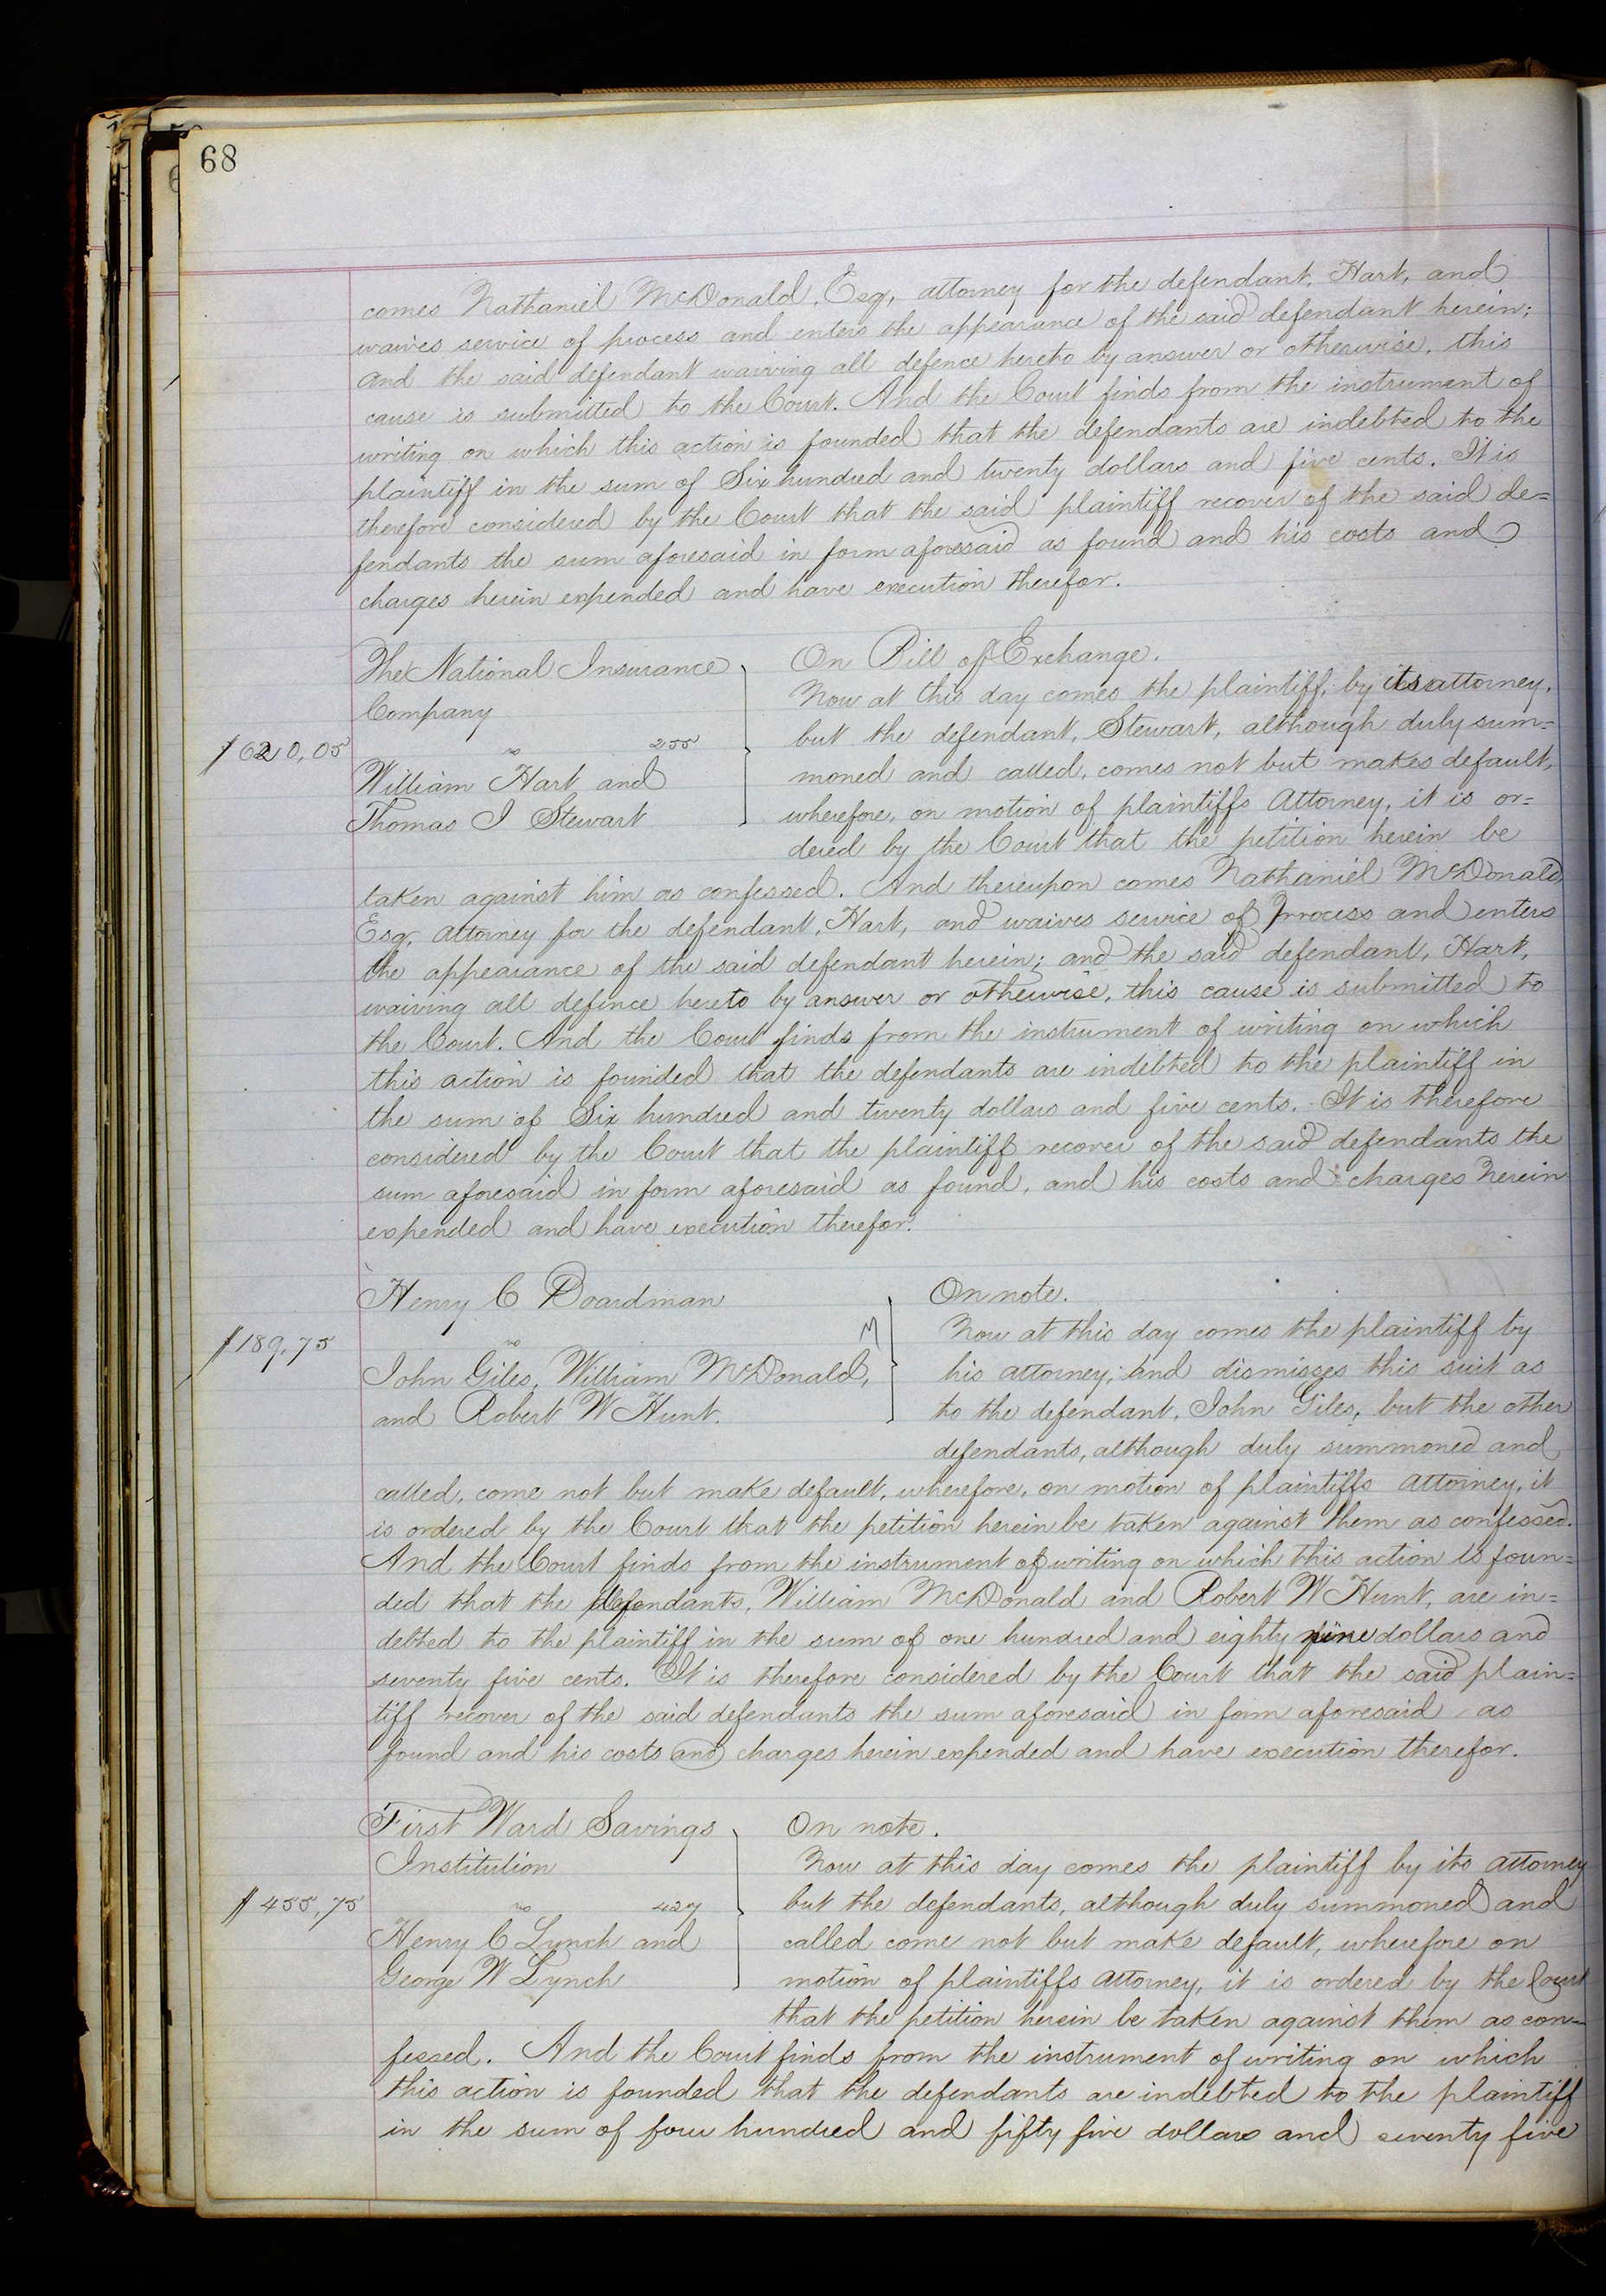 68
comes Nathaniel McDonald, Esq, attorney for the defendant, Hart, and
waives service of process and enters the appearance of the said defendant herein;
and the said defendant waiving all defence hereto by answer or otherwise, this
cause is submitted to the Court. And the Court finds from the instrument of
writing on which this action is founded that the defendants are indebted to the
plaintiff in the sum of Six hundred and twenty dollars and five cents. It is
therefore considered by the Court that the said plaintiff recover of the said de=
fendants the sum aforesaid in form aforesaid as found and his costs and
charges herein expended and have execution therefor.
The National Insurance
Company
$620,05
vs 255
William Hart and
Thomas I Stewart
On Bill of Exchange.
Now at this day comes the plaintiff, by its attorney,
but the defendant, Stewart, although duly sum=
moned and called, comes not but makes default,
wherefore, on motion of plaintiffs Attorney, it is or=
dered by the Court that the petition herein be
taken against him as confessed. And thereupon comes Nathaniel McDonald
Esq, attorney for the defendant, Hart, and waives service of process and enters
the appearance of the said defendant herein; and the said defendant, Hart,
waiving all defince hereto by answer or otherwise, this cause is submitted to
the Court. And the Court finds from the instrument of writing on which
this action is founded that the defendants are indebted to the plaintiff in
the sum of Six hundred and twenty dollars and five cents. It is therefore
considered by the Court that the plaintiff recover of the said defendants the
sum aforesaid in form aforesaid as found, and his costs and charges herein
expended and have execution therefor.
Henry C Boardman
$189,75
vs
John Giles, William McDonald,
and Robert W Hunt.
On note.
Now at this day comes the plaintiff by
his attorney, and dismisses this suit as
to the defendant, John Giles, but the other
defendants, although duly summoned and
called, come not but make default, wherefore, on motion of plaintiffs attorney, it
is ordered by the Court that the petition herein be taken against them as confessed.
And the Court finds from the instrument of writing on which this action is foun=
ded that the defendants, William McDonald and Robert W Hunt, are in=
debted to the plaintiff in the sum of one hundred and eighty nine dollars and
seventy five cents. It is therefore considered by the Court that the said plain=
tiff recover of the said defendants the sum aforesaid in form aforesaid as
found and his costs and charges herein expended and have execution therefor.
First Ward Savings
Institution
$455,75
vs 427
Henry C Lynch and
George W Lynch
On note.
Now at this day comes the plaintiff by its attorney
but the defendants, although duly summoned and
called come not but make default, wherefore on
motion of plaintiffs attorney, it is ordered by the Court
that the petition herein be taken against them as con=
fessed. And the Court finds from the instrument of writing on which
this action is founded that the defendants are indebted to the plaintiff
in the sum of four hundred and fifty five dollars and seventy five